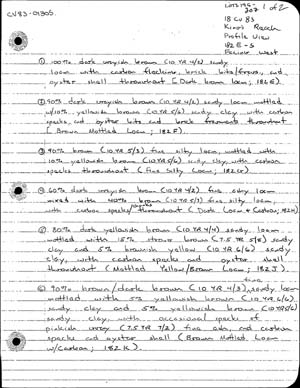 CV83-01305.
1 of 2
18 CV 83
Kings Reach
Profile View
182 E-S
Facing West
① 100% dark greyish brown (10 YR 4/2) sandy
loam with carbon flecking, brick bits/frags, and
oyster shell throughout (Dark loam; 182E).
② 90% dark greyish brown (10 YR 4/2) sandy loam mottled
w/10% yellowish brown (10 YR 5/6) sandy clay with carbon
specks, and oyster bits and brick fragments throughout
(Brown Mottled Loam; 182F)
③ 90% brown (10 YR 5/3) fine silty loam, mottled with
10% yellowish brown (10 YR 5/6) sandy clay, with carbon
specks throughout (Fine Silty Loam; 182G)
④ 60% dark greyish brown (10 YR 4/2) fine silty loam
mixed with 40% brown (10 YR 5/3) fine silty loam,
with carbon specks/ throughout (Dark Loam & Carbon; 182H)
⑤ 80% dark yellowish brown (10 YR 4/4) sandy loam,
mottled with 15% strong brown (7.5 YR 5/8) sandy
clay and 5% brownish yellow (10 YR 6/6) sandy
clay, with carbon specks and oyster shell
throughout (Mottled Yellow/Brown Loam; 182J).
⑥ 90% brown/dark brown (10 YR 4/3) sandy loam
mottled with 5% yellowish brown (10 YR 6/6)
sandy clay and 5% yellowish brown (10 YR 5/6)
sandy clay, with occasional specks of
pinkish gray (7.5 YR 7/2) fine ash, and carbon
specks and oyster shell (Brown Mottled Loam
w/Carbon; 182K).